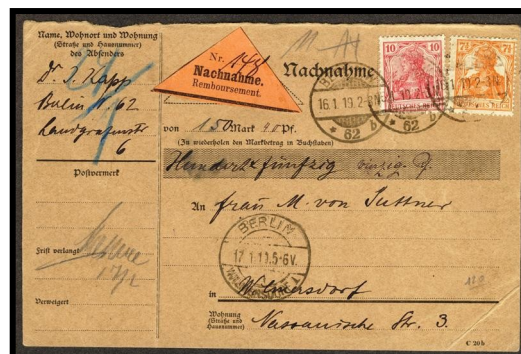 Name, Wohnort und Wohnung
(Straße und Hausnummer)
des Absenders
Dr. S. Kapp
Berlin W. 62
Landgrafenstr
6
Postvermerk
Frist verlangt
Verweigert
Nr. 148
Nachnahme.
Remboursement.
Nachnahme
10
DEUTSCHES REICH
7½
7½
DEUTSCHES REICH
16.1.19.2-3N
* 62 b
von 150 Mark 40 Pf.
(Zu wiederholen den Markbetrag in Buchstaben)
Hundert & fünfzig
An Frau M. von Suttner
BERLIN
17.1.19.5-6V.
WILMERSDORF 1
in Wilmersdorf
Wohnung
(Straße und
Hausnummer)
Nassauische Str. 3.
C 20 b